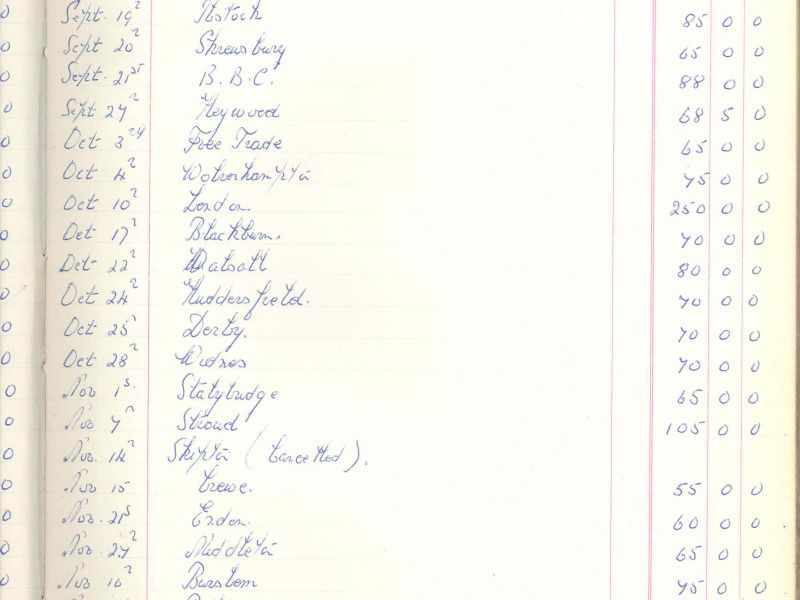 0 Sept. 19th Ibstock 85 0 0
0 Sept 20th Shrewsbury 65 0 0
0 Sept. 21st B. B. C. 88 0 0
0 Sept 27th Heywood 68 5 0
0 Oct 3rd Free Trade 65 0 0
0 Oct 4th Wolverhampton 75 0 0
0 Oct 10th London. 250 0 0
0 Oct 17th Blackburn. 70 0 0
0 Oct 22nd Walsall 80 0 0
0 Oct 24th Huddersfield. 70 0 0
0 Oct 25th Derby. 70 0 0
0 Oct 28th Widnes 70 0 0
0 Nov 1st Stalybridge 65 0 0
0 Nov 7th Stroud 105 0 0
0 Nov. 14th Skipton (Cancelled).
0 Nov 15 Crewe. 55 0 0
0 Nov. 21st 60 0 0
0 Nov. 27th Middleton 65 0 0
0 Nov 10th Burslem 75 0 0